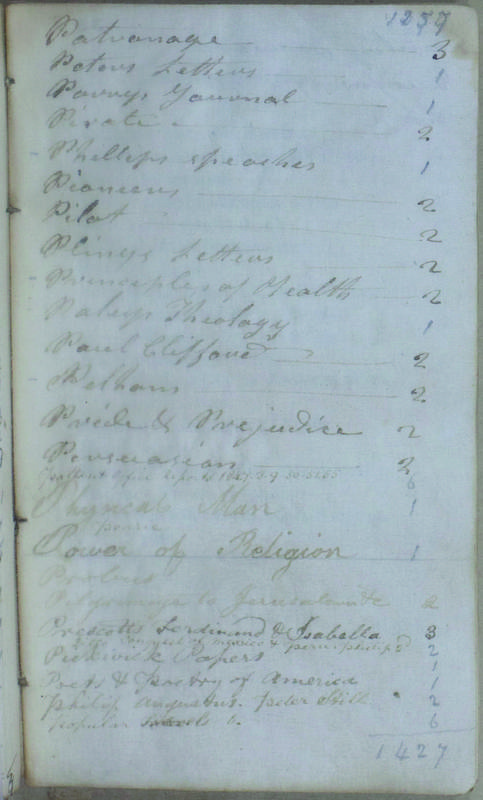 1257
Patronage 3
Peters Letters 1
Parrys Journal 1
Pirate 2
Phillips speaches 1
Pioneers 2
Pilot 2
Plinys Letters 2
Principles of Health 2
Paleys Theology 1
Paul Clifford 2
Pelham 2
Pride & Prejudice 2
Persuasion 2
Patent Office 6
Physical Man 1
Power of Religion 1
Probus
Pilgrimage to Jerusalem 2
Prescotts Ferdinand & Isabella 3
Conquest of Mexico & 2
Pickwick Papers 1
Poets & Poetry of America 1
Philip Augustus. Peter 2
popular 6
1427